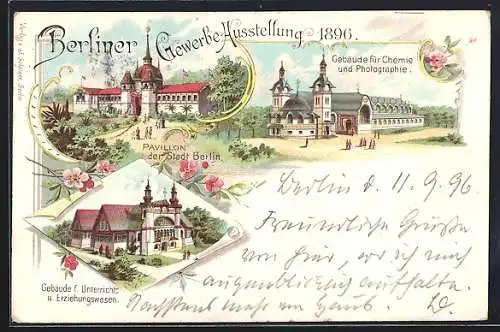 Berliner Gewerbe-Ausstellung 1896.
Gebäude für Chemie
und Photographie.
PAVILLON
der Stadt Berlin.
Gebäude f. Unterricht
u. Erziehungswesen.
Berlin d. 11.9.96
Freundliche Grüße
von hier, wo ich mich
augenblicklich aufhalte.
mehr von